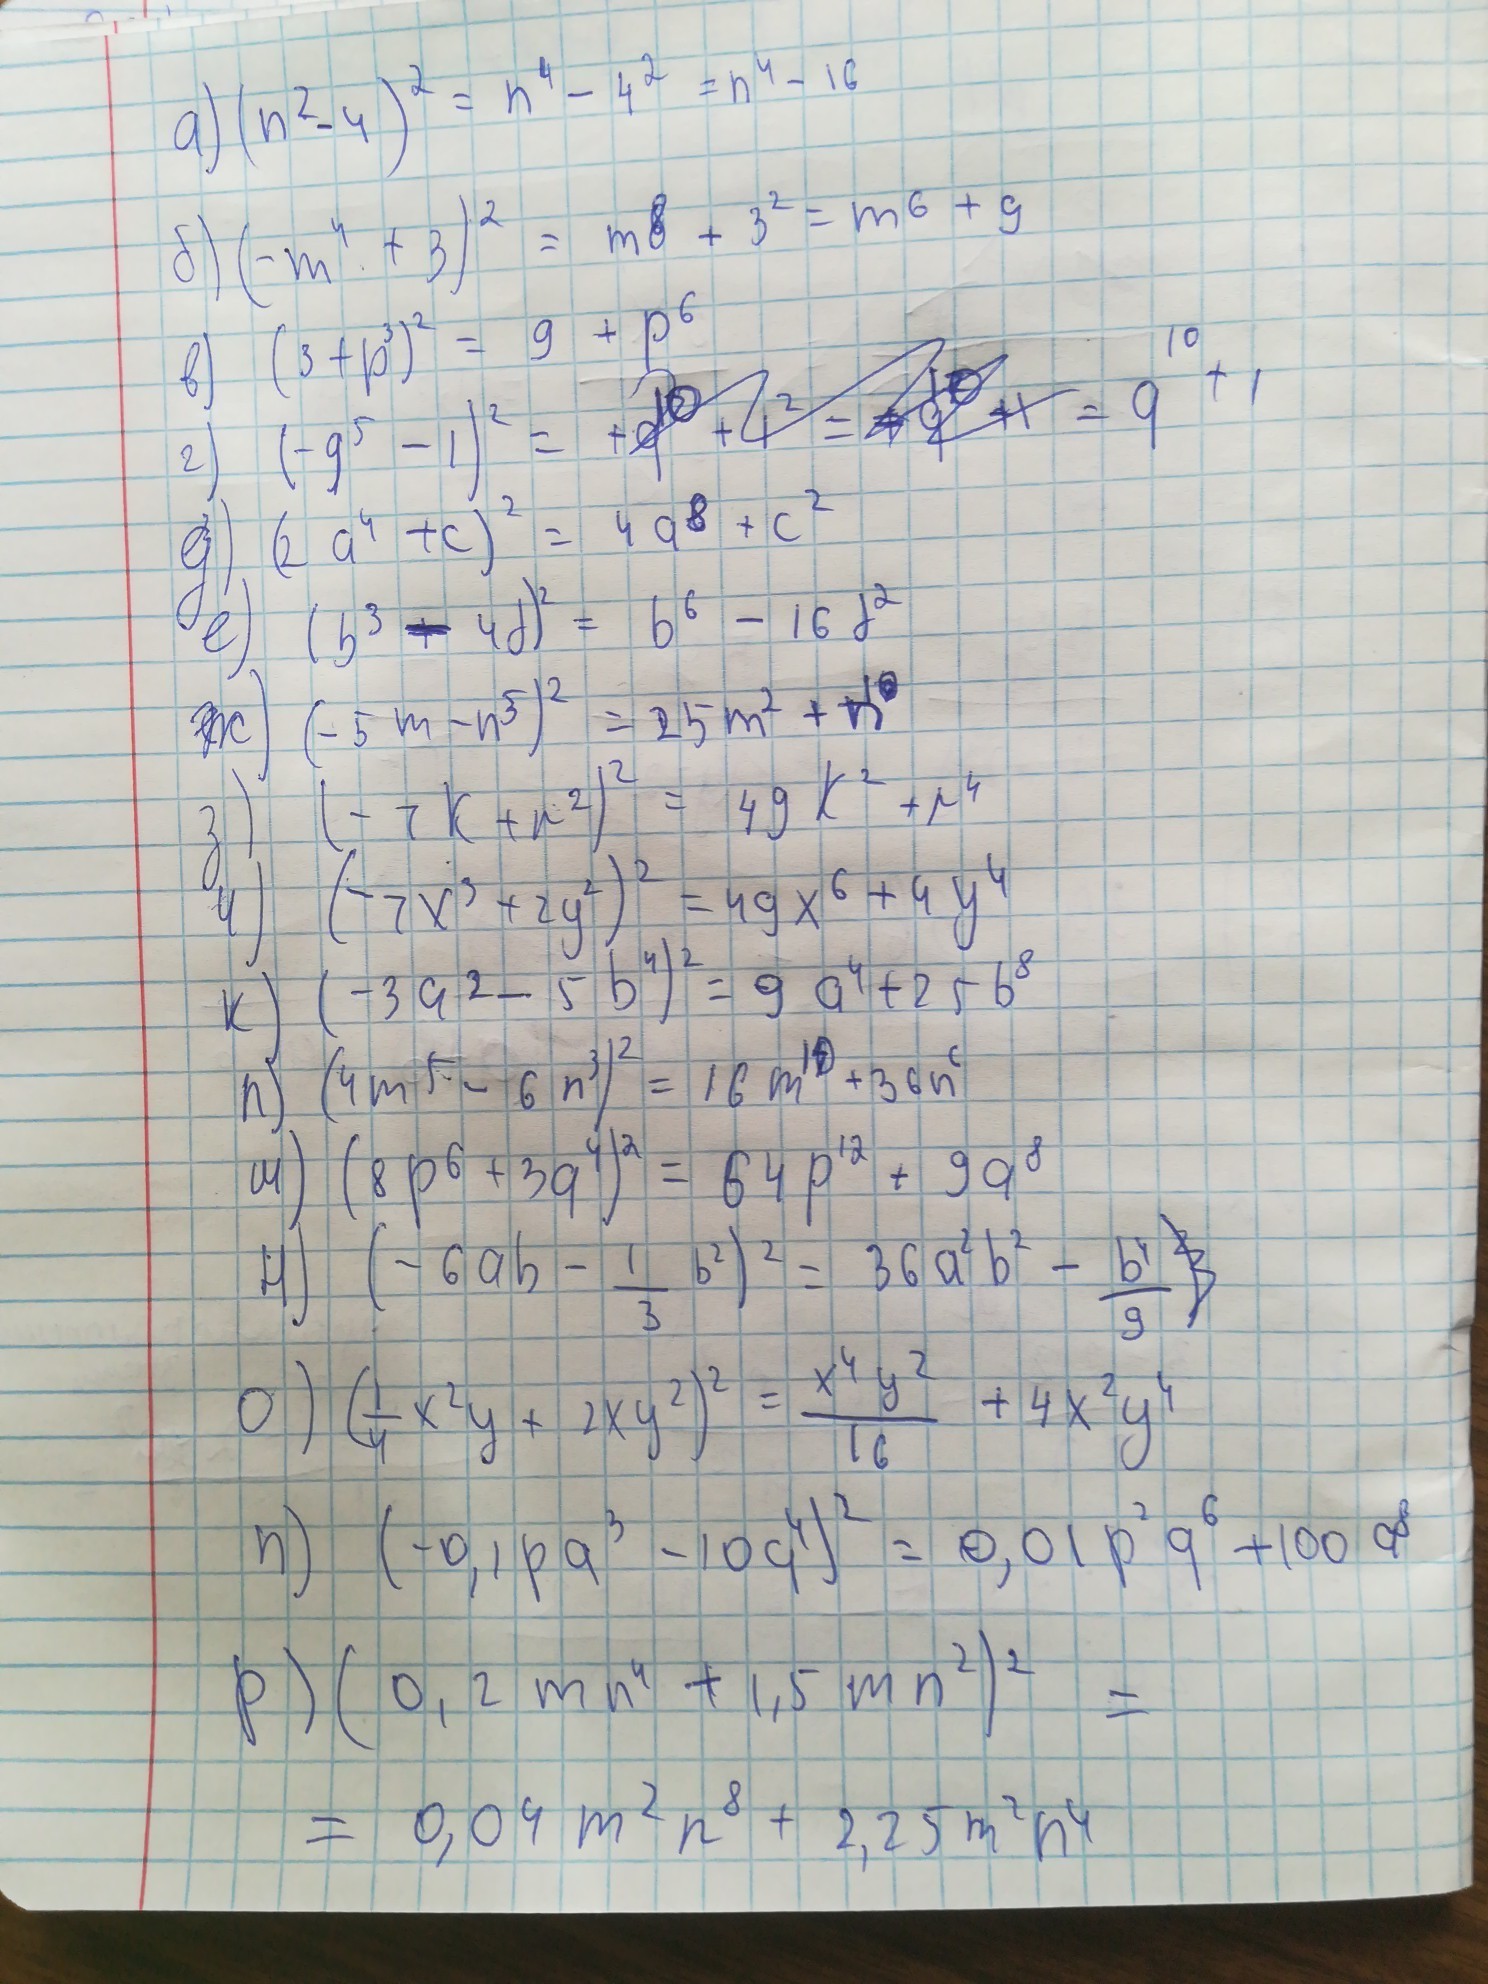 а) (n² - 4)² = n⁴ - 4² = n⁴ - 16
б) (-m⁴ + 3)² = m⁸ + 3² = m⁶ + 9
в) (3 + p³)² = 9 + p⁶
г) (-q⁵ - 1)² = = q¹⁰ + 1
д) (2a⁴ + c)² = 4a⁸ + c²
е) (b³ - 4d)² = b⁶ - 16d²
ж) (-5m - n⁵)² = 25m² + n¹⁰
з) (-7k + r²)² = 49k² + r⁴
и) (-7x³ + 2y²)² = 49x⁶ + 4y⁴
к) (-3a² - 5b⁴)² = 9a⁴ + 25b⁸
л) (4m⁵ - 6n³)² = 16m¹⁰ + 36n⁶
м) (8p⁶ + 3q⁴)² = 64p¹² + 9q⁸
н) (-6ab - 1/3 b²)² = 36a²b² - b⁴/9
о) (1/4 x²y + 2xy²)² = x⁴y²/16 + 4x²y⁴
п) (-0,1pq³ - 10q⁴)² = 0,01p²q⁶ + 100q⁸
р) (0,2mn⁴ + 1,5mn²)² =
= 0,04m²n⁸ + 2,25m²n⁴